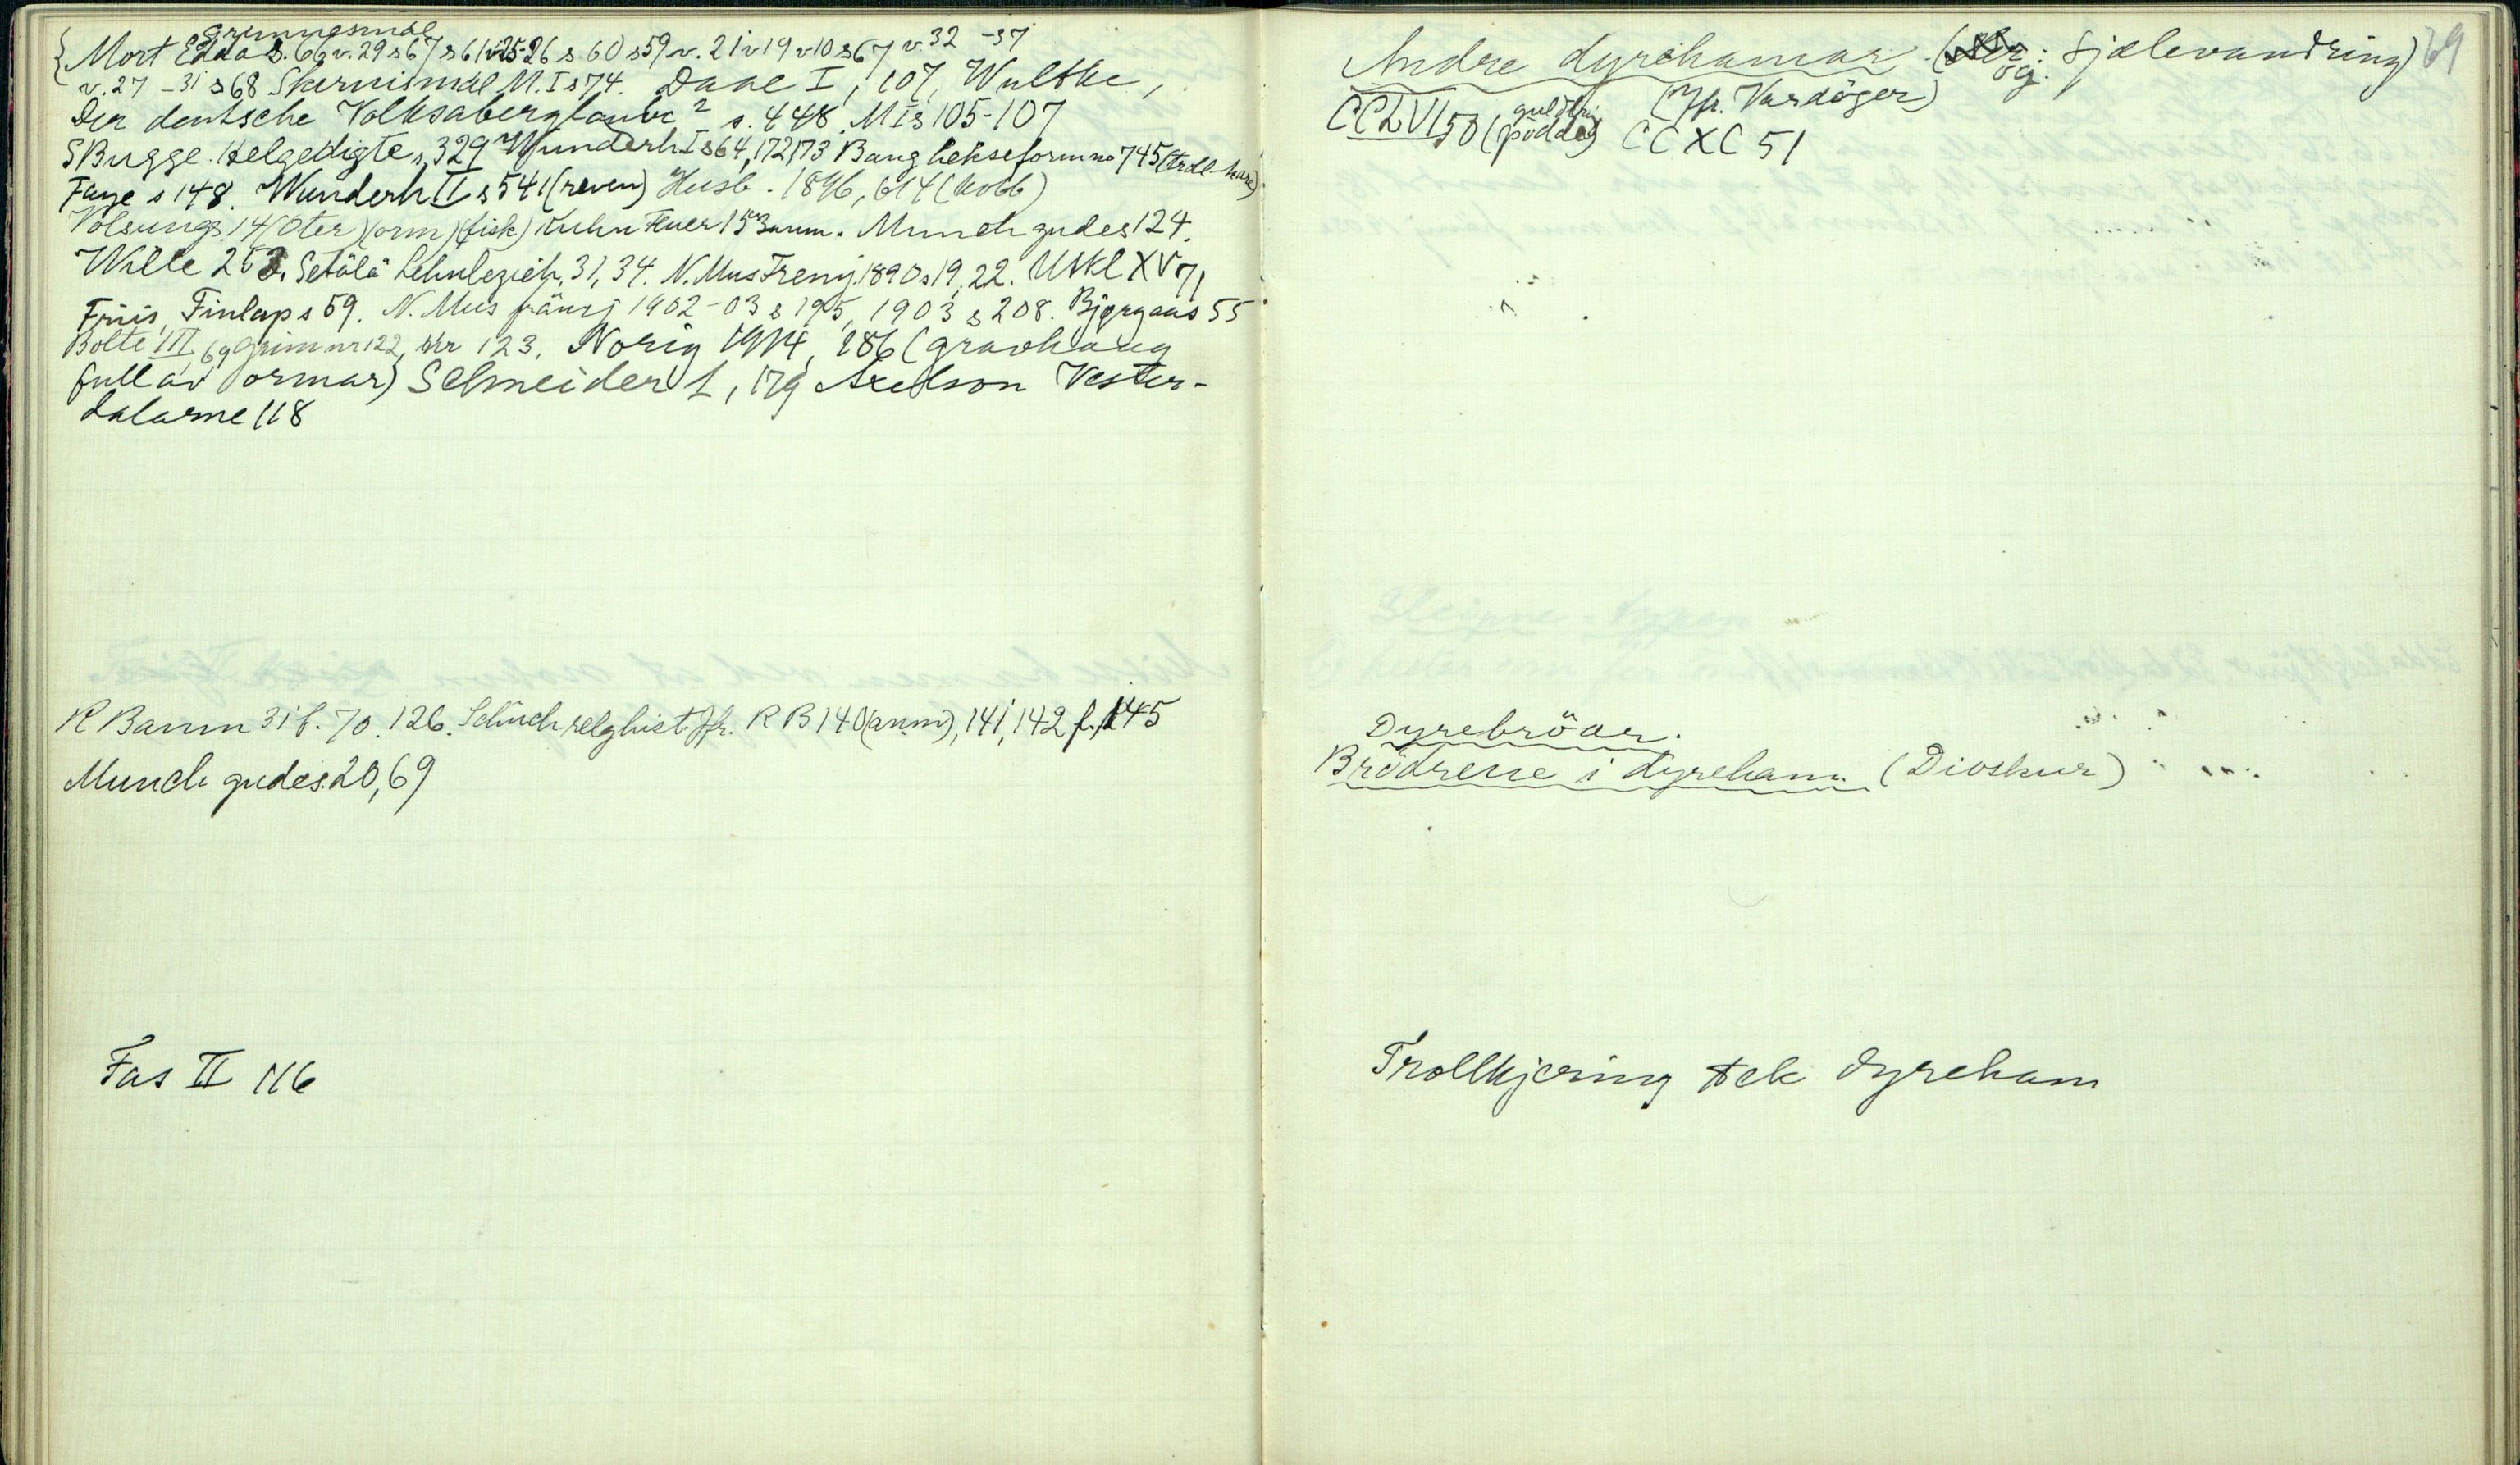 Grimnesmål
Mort Edda s. 66 v. 29 s 67 s 61 v 25-26 s 60 s 59 v. 21 v 19 v 10 s 67 v. 32 -37
v. 27 - 31 s 68 Skernismål M. I s 74. Daae I, 107, Wultke,
Der deutsche Volksaberglaube² s. 448. M I s 105-107
S Bugge. Helgedigte s. 329 Wunderh I s 64, 172, 173 Bang hekseform no 745 (troll-hare)
Faye s 148. Wunderh II s 541 (reven) Husb. 1896, 614 (kobb)
Volsungs. 14 (Oter) (orm) (fisk) Kuhn Feuer 153 anm. Munch gudes 124.
Wille 253. Setälä Lehnbezieh. 31, 34. N. Mus Fremj. 1890 s 19, 22. Uskl XV 71
Friis, Finlap s 59. N. Mus främj 1902-03 s 195, 1903 s 208. Bjørgaas 55
Bolte III, 69 Grim nr 122, nr 123, Norig 1914, 286 (gravhaug
full av ormar) Schneider 1, 179 Axelson Vester-
dalarne 118
R Baum 31 f. 70. 126. Schück relghist. Jfr. R B 140 (anm), 141, 142 f. 145
Munch gudes. 20, 69
Fas II 116
69
Andre dyrehamar (og: Sjælevandring)
(Jfr. Vardöger)
CCLVI 50 (padda) CCXC 51
Dyrebröar.
Brödrene i dyreham. (Dioskur)
Trollkjering tek dyreham